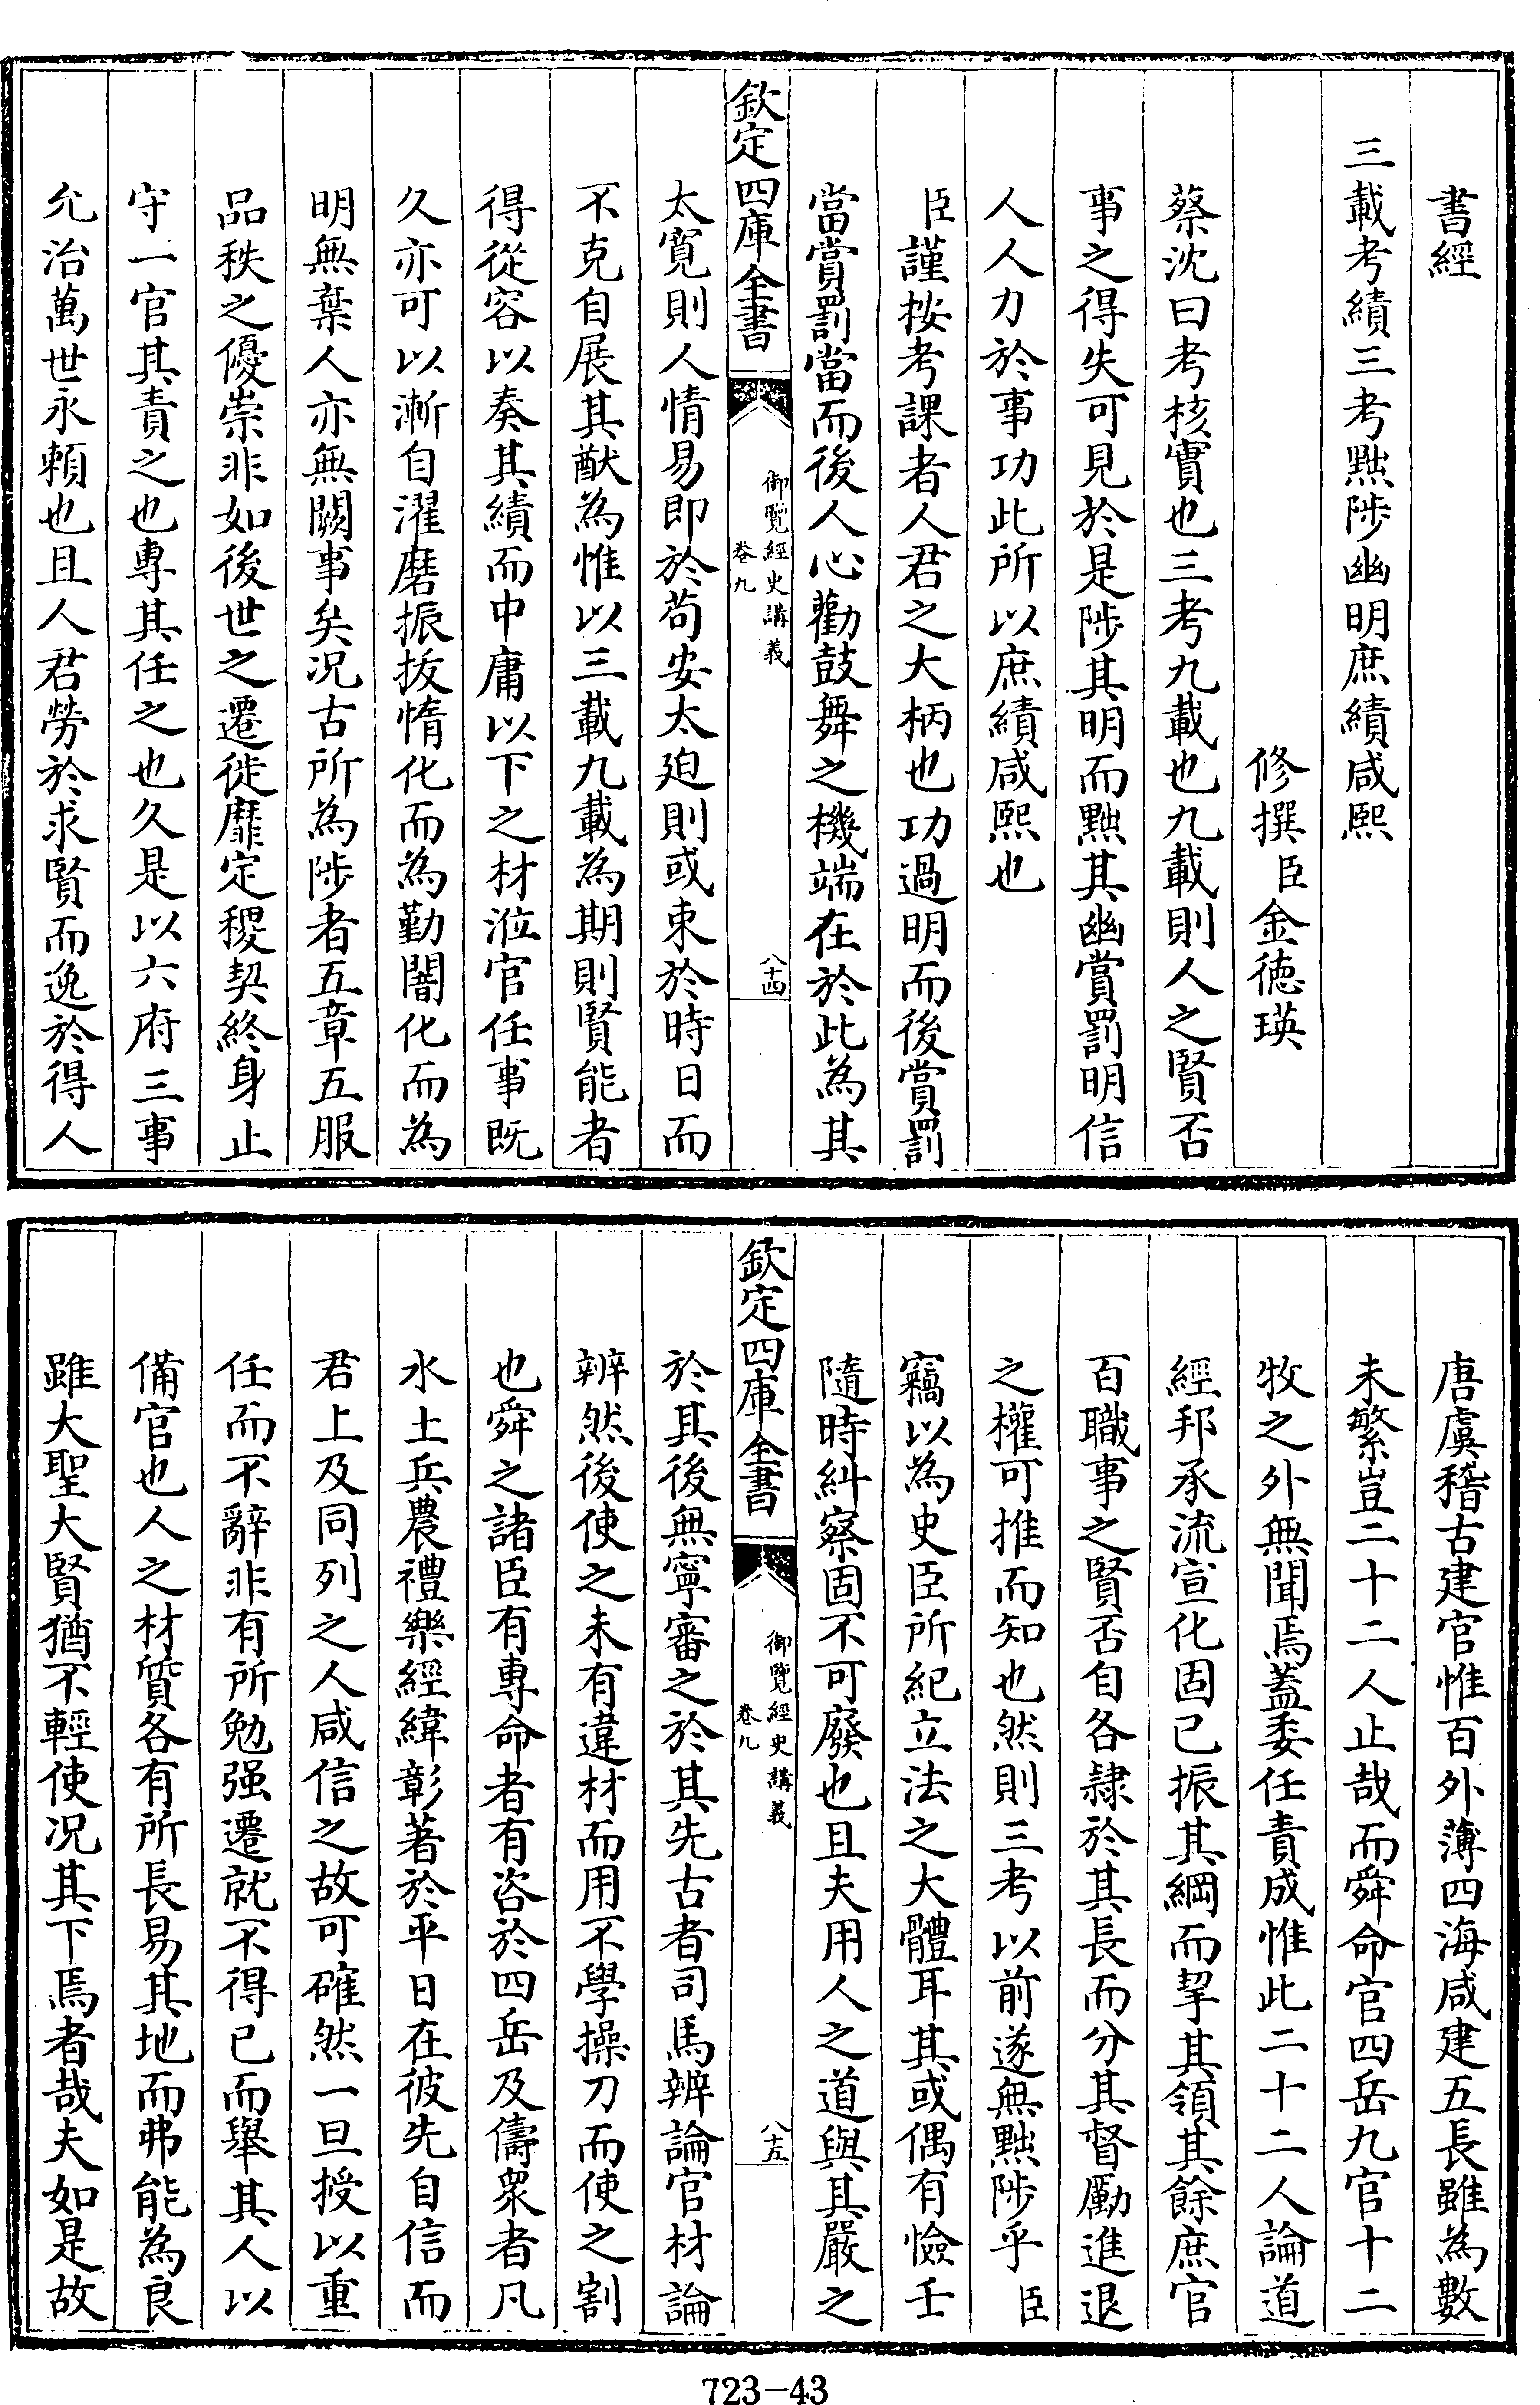 書經
三載考績三考黜陟幽明庶績咸熙
修撰臣金德瑛
蔡沈曰考核實也三考九載也九載則人之賢否
事之得失可見於是陟其明而黜其幽賞罰明信
人人力於事功此所以庶績咸熙也
臣謹按考課者人君之大柄也功過明而後賞罰
當賞罰當而後人心勸鼓舞之機端在於此為其
欽定四庫全書
御覽經史講義
卷九
八十四
太寬則人情易即於茍安太廹則或束於時日而
不克自展其猷為惟以三載九載為期則賢能者
得從容以奏其績而中庸以下之材涖官任事既
久亦可以漸自濯磨振拔惰化而為勤闇化而為
明無棄人亦無闕事矣况古所為陟者五章五服
品秩之優崇非如後世之遷徙靡定稷契終身止
守一官其責之也專其任之也久是以六府三事
允治萬世永賴也且人君勞於求賢而逸於得人
唐虞稽古建官惟百外薄四海咸建五長雖為數
未繁豈二十二人止哉而舜命官四岳九官十二
牧之外無聞焉蓋委任責成惟此二十二人論道
經邦承流宣化固已振其綱而挈其領其餘庶官
百職事之賢否自各隷於其長而分其督勵進退
之權可推而知也然則三考以前遂無黜陟乎臣
竊以為史臣所紀立法之大體耳其或偶有憸壬
隨時糾察固不可廢也且夫用人之道與其嚴之
欽定四庫全書
御覽經史講義
卷九
八十五
於其後無寧審之於其先古者司馬辨論官材論
辨然後使之未有違材而用不學操刀而使之割
也舜之諸臣有專命者有咨於四岳及儔衆者凡
水土兵農禮樂經緯彰著於平日在彼先自信而
君上及同列之人咸信之故可確然一旦授以重
任而不辭非有所勉强遷就不得已而舉其人以
備官也人之材質各有所長易其地而弗能為良
雖大聖大賢猶不輕使况其下焉者哉夫如是故
723-43